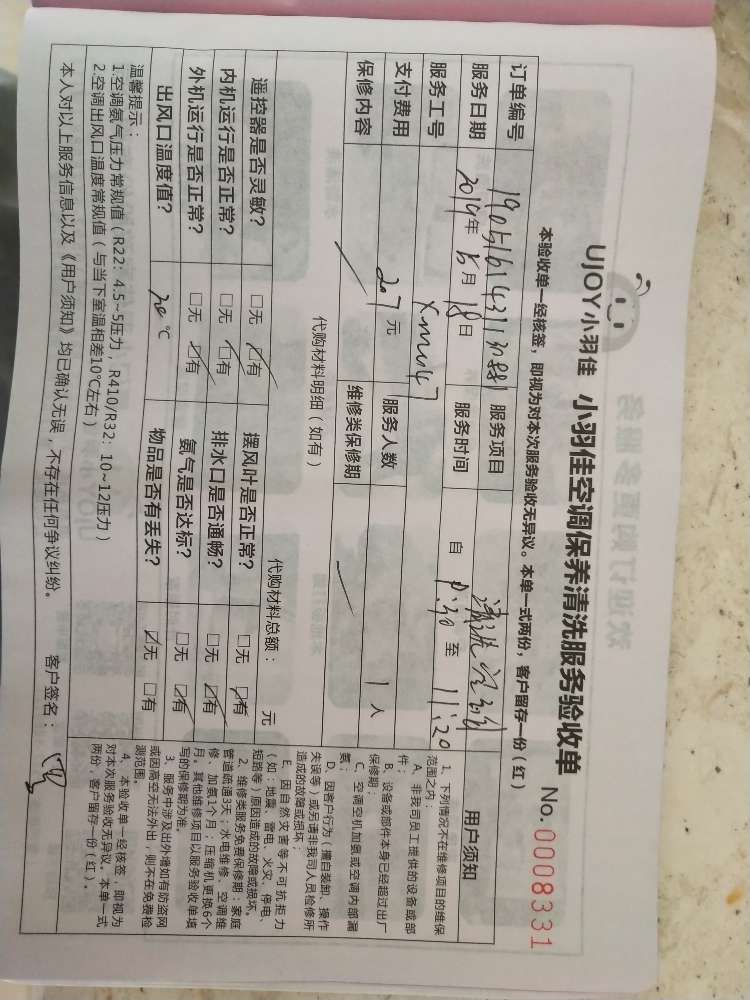 UJOY小羽佳 小羽佳空调保养清洗服务验收单 No. 0008331
本验收单一经核签，即视为对本次服务验收无异议。本单一式两份，客户留存一份（红）
订单编号 服务项目
服务日期 2019年 8月 18日 服务时间 自 至 11:20
服务工号 Xmw47
支付费用 207 元 服务人数 1 人
保修内容 维修类保修期
代购材料明细（如有） 代购材料总额： 元
遥控器是否灵敏? □无 ☑有 摆风叶是否正常? □无 ☑有
内机运行是否正常? □无 ☑有 排水口是否通畅? □无 ☑有
外机运行是否正常? □无 ☑有 氨气是否达标? □无 ☑有
出风口温度值? 20 ℃ 物品是否有丢失? ☑无 □有
温馨提示：
1.空调氨气压力常规值（R22：4.5~5压力，R410/R32：10~12压力）
2.空调出风口温度常规值（与当下室温相差10℃左右）
本人对以上服务信息以及《用户须知》均已确认无误，不存在任何争议纠纷。 客户签名：
用户须知
1、下列情况不在维修项目的维保
范围之内：
A、非我司员工提供的设备或部
件；
B、设备或部件本身已经超过出厂
保修期；
C、空调空机加氨或空调内部漏
氨；
D、因客户行为（擅自装卸、操作
失误等）或另请非我司人员检修所
造成的故障或损坏；
E、因自然灾害等不可抗拒力
（如：地震、雷电、火灾、停电、
短路等）原因造成的故障或损坏。
2、维修类服务免费保修期：家庭
管道疏通3天；水电维修、空调维
修、加氨1个月；压缩机更换6个
月。其他维修项目以服务验收单填
写的保修期为准。
3、服务中涉及出外墙如有防盗网
或因高空无法外出，则不在免费检
测范围。
4、本验收单一经核签，即视为
对本次服务验收无异议。本单一式
两份，客户留存一份（红）。